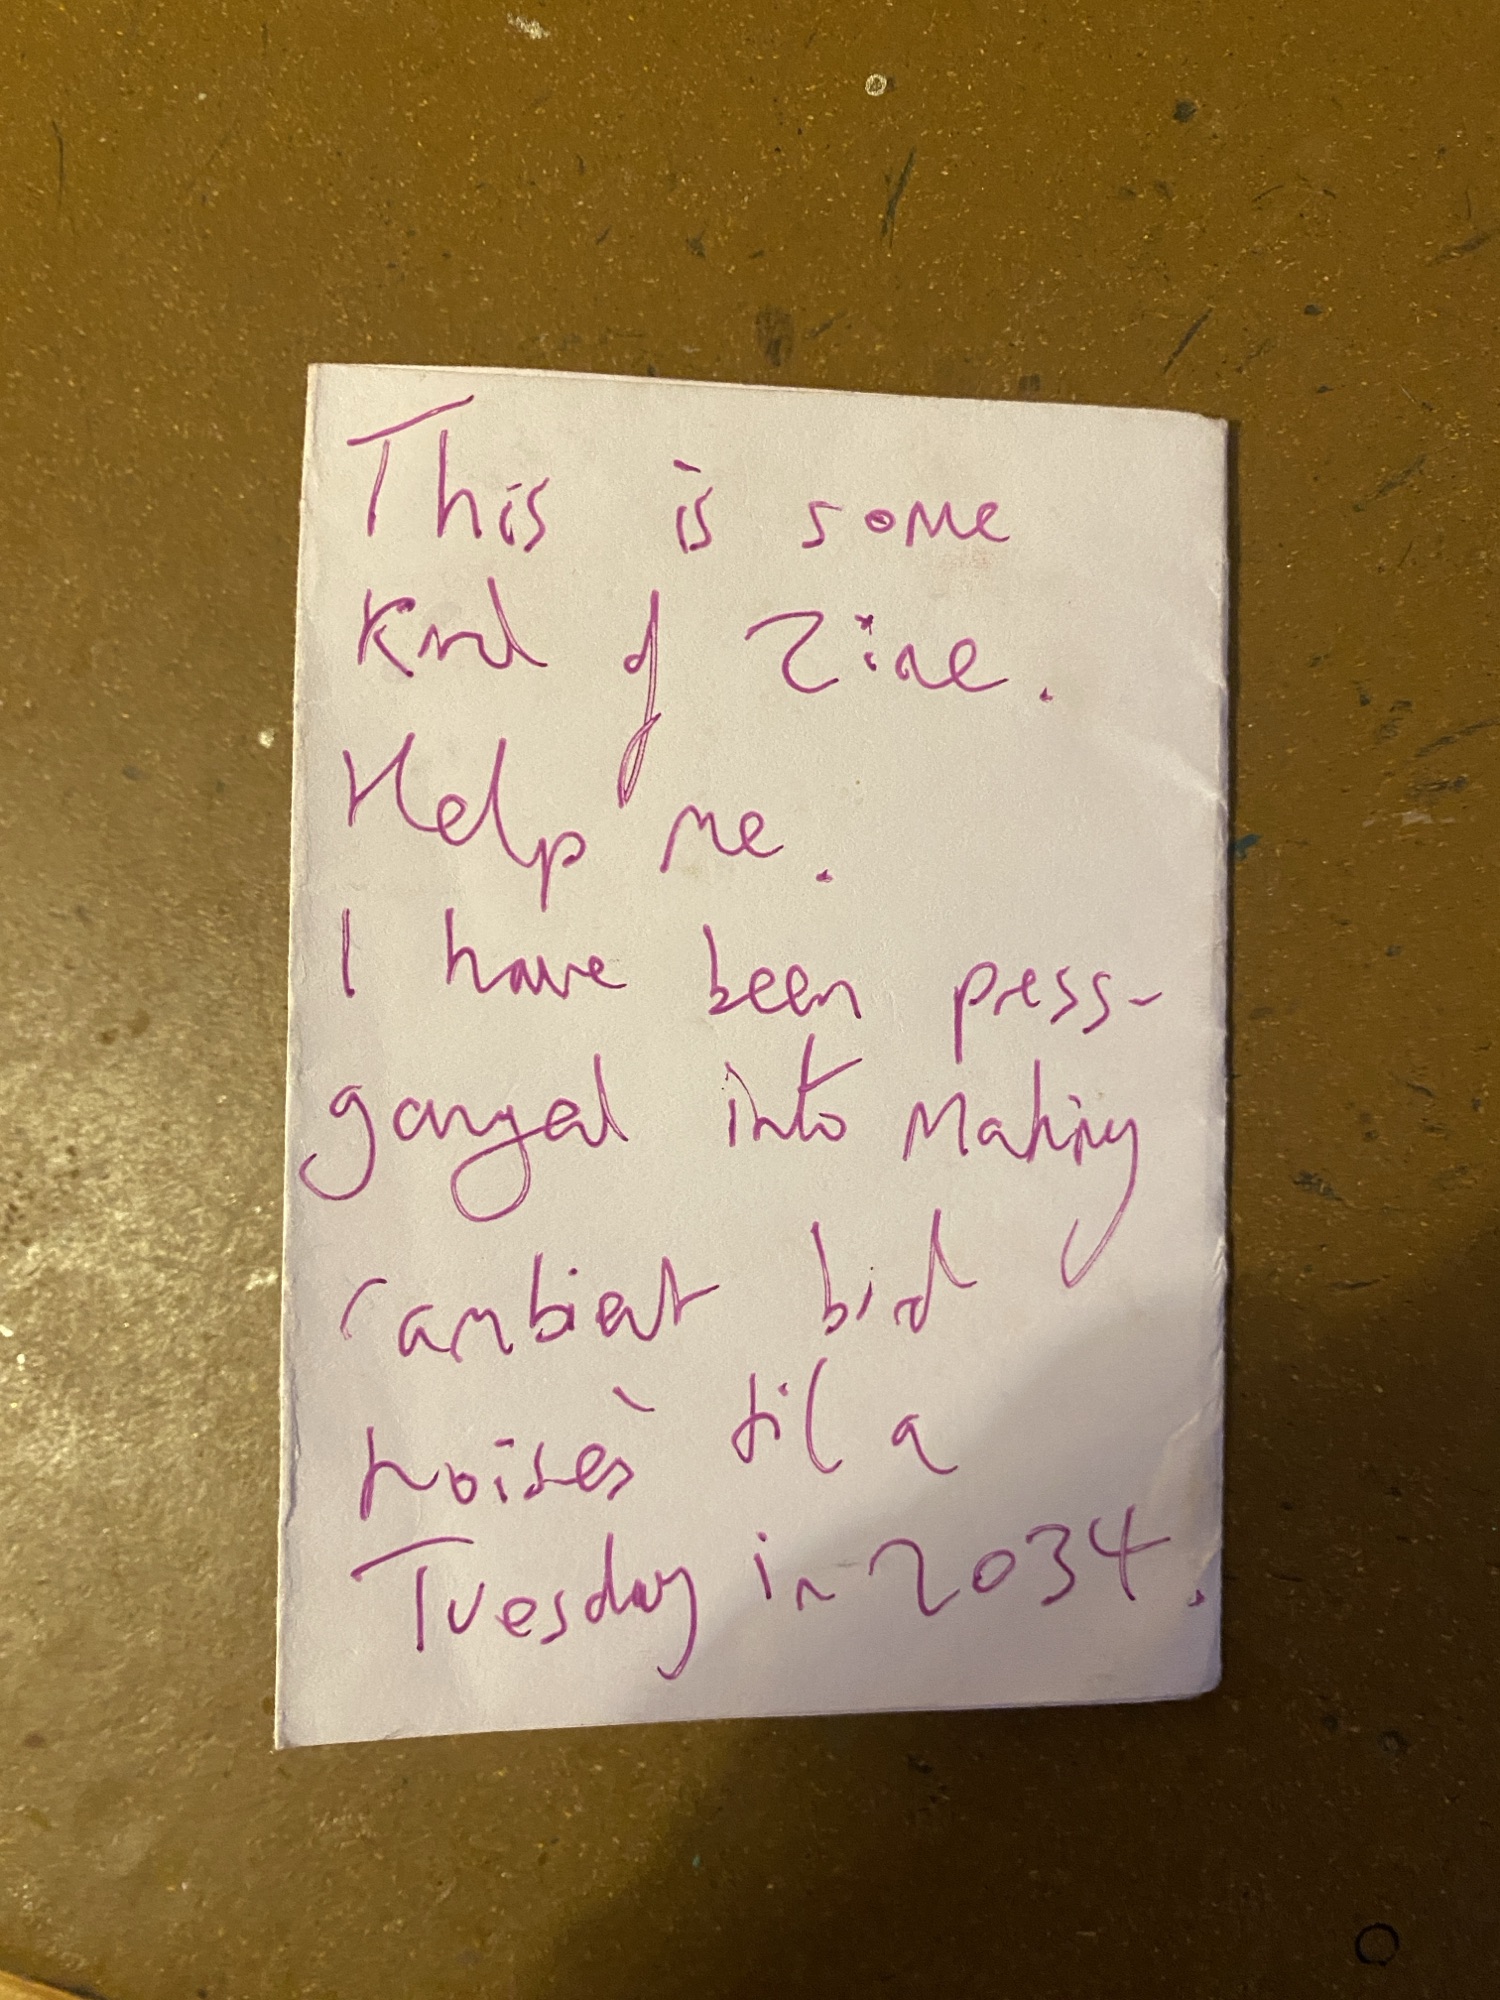 This is some
Kind of Zine.
Help me.
I have been press-
ganged into Making
'ambient bird
noises' til a
Tuesday in 2034.